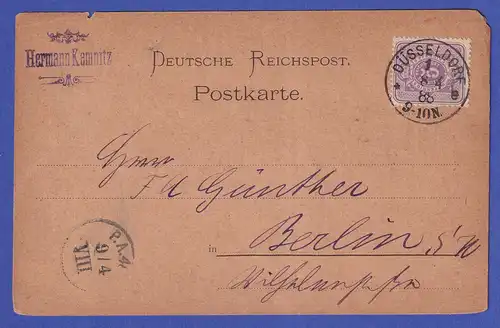 Hermann Kemnitz
DEUTSCHE REICHSPOST.
Postkarte.
DÜSSELDORF
1
4
88
9-10N.
Herrn
F A Günther
in Berlin S W
P.A.
9/4
VIII